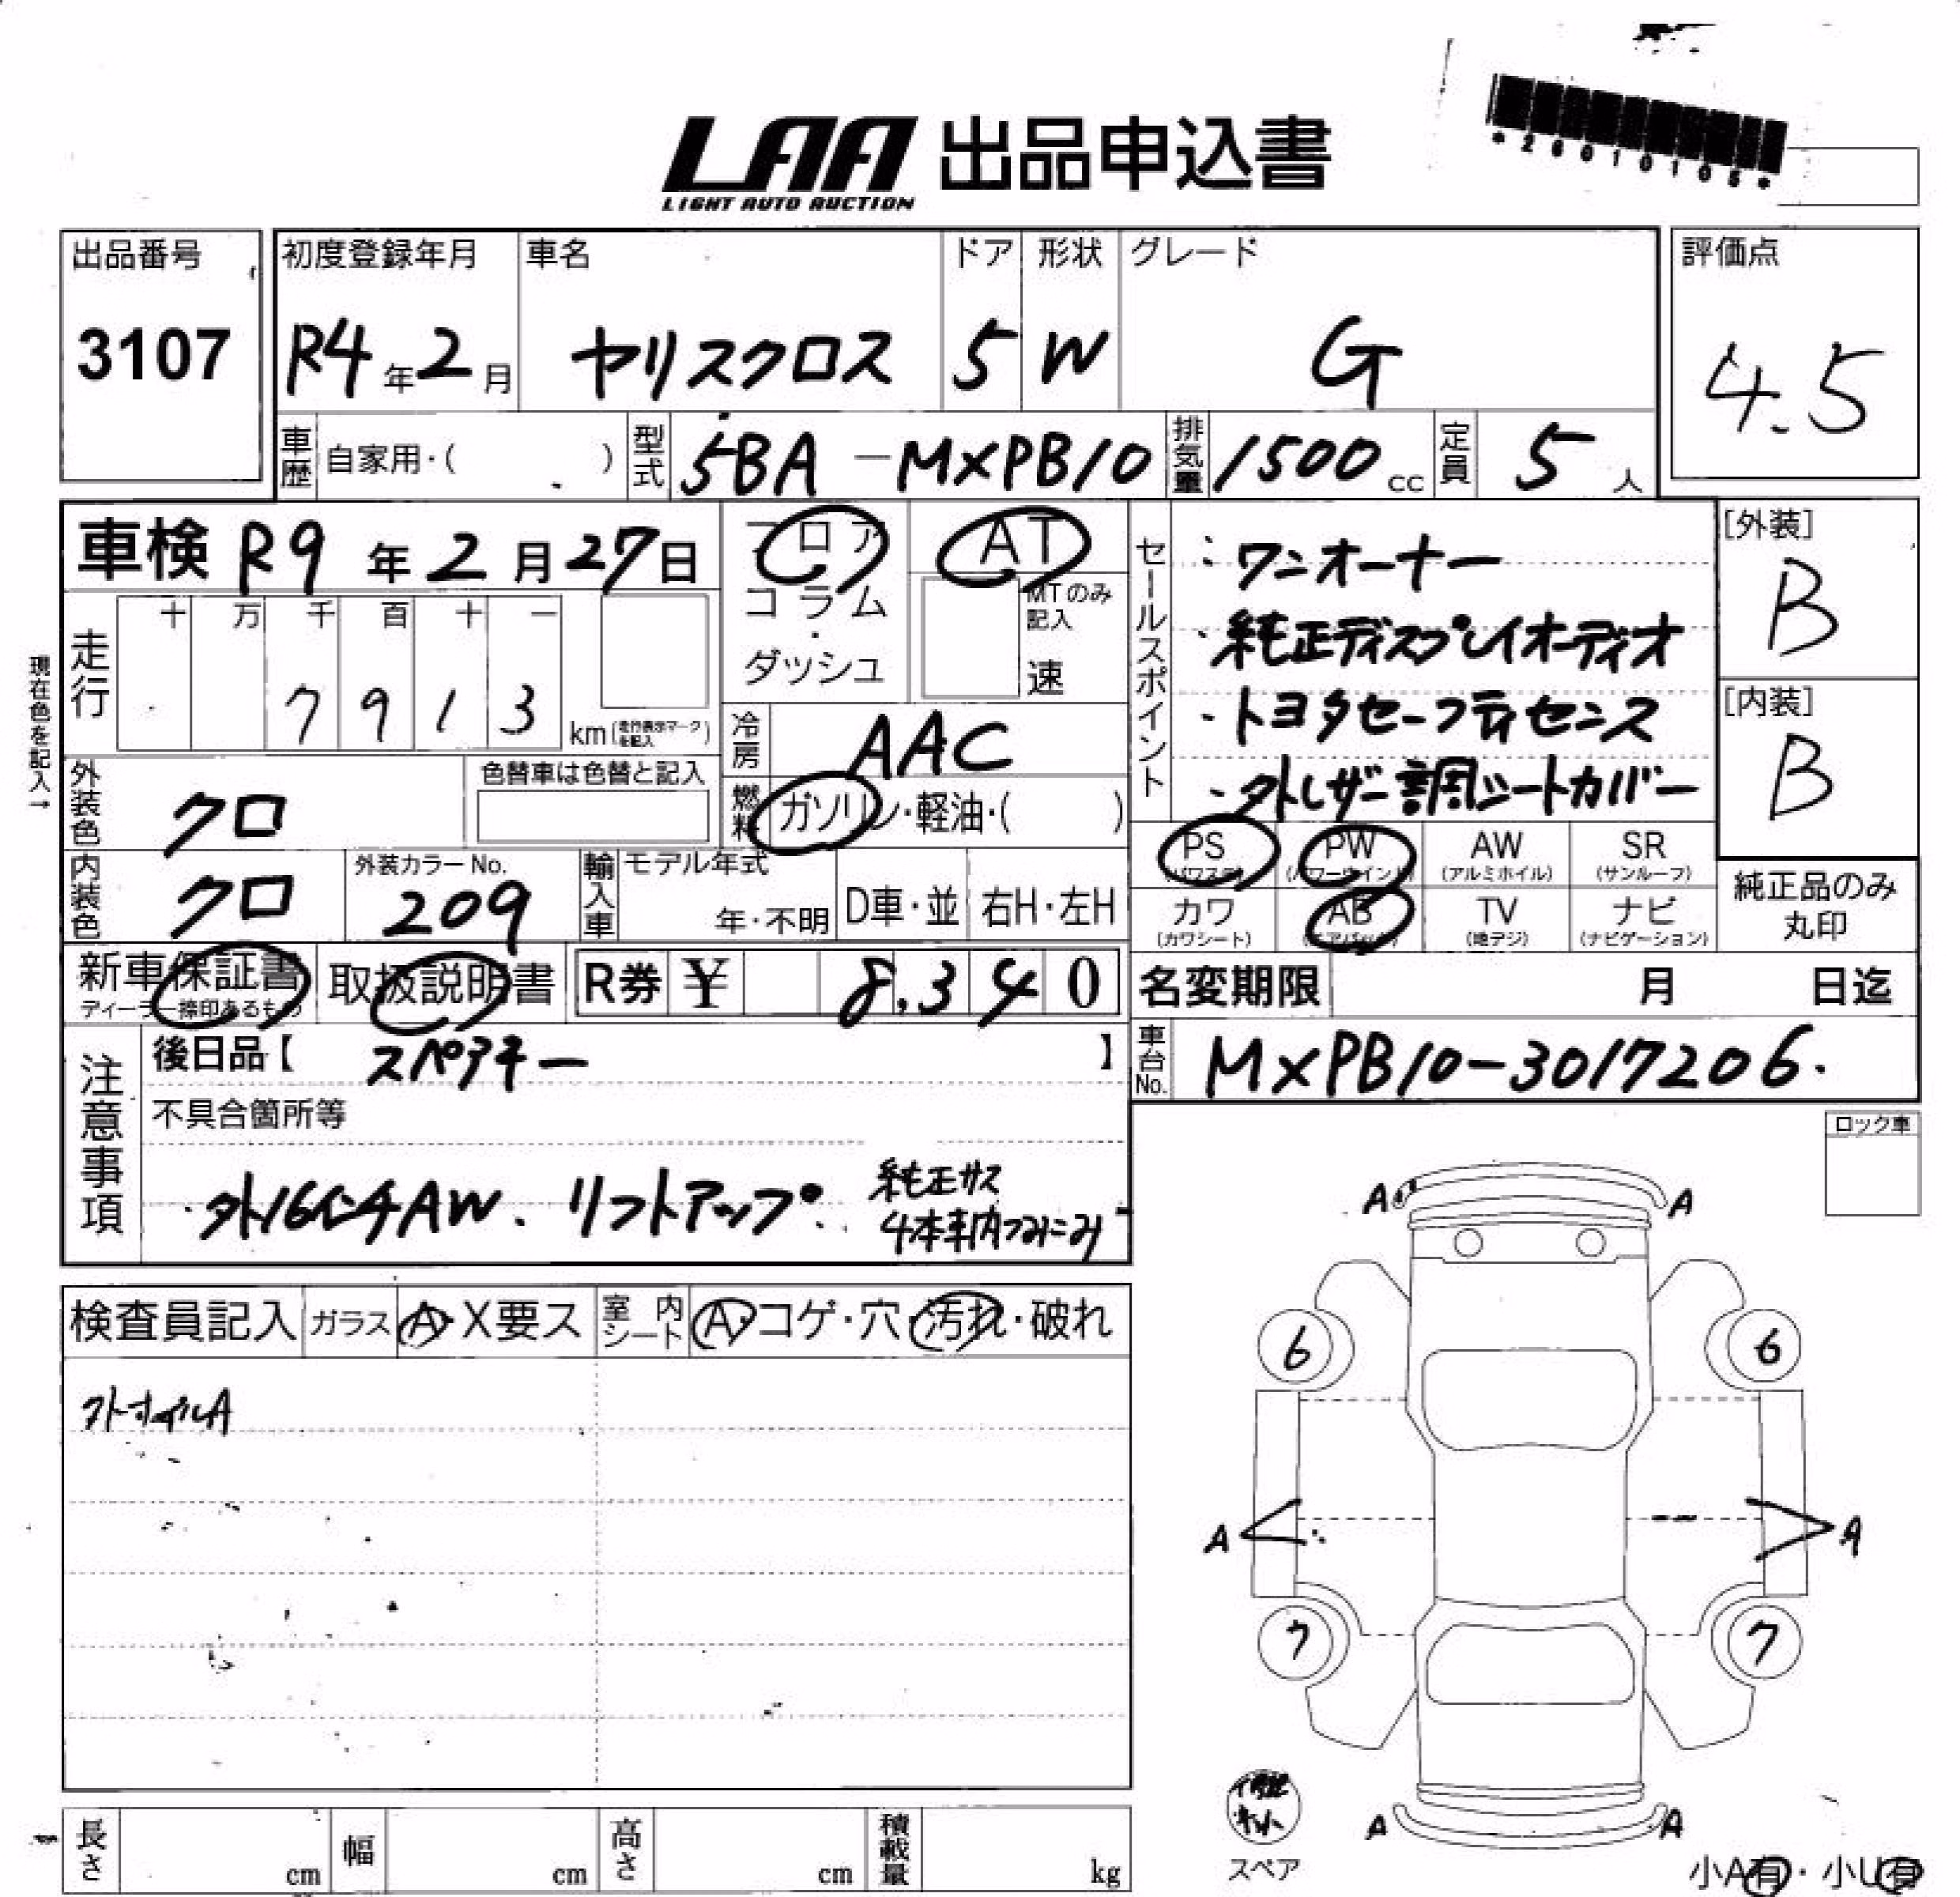 LAA 出品申込書
LIGHT AUTO AUCTION
*2601010S*
出品番号 初度登録年月 車名 ドア 形状 グレード 評価点
3107 R4年2月 ヤリスクロス 5 W G 4.5
車歴 自家用・( ) 型式 5BA-MXPB10 排気量 1500cc 定員 5人
車検 R9年2月27日
フロア・コラム・ダッシュ
AT
MTのみ記入
速
現在色を記入→
走行 十 万 千 百 十 一
7 9 1 3 km(走行表示マークを記入)
冷房 AAC
燃料 ガソリン・軽油・( )
外装色 クロ 色替車は色替と記入
内装色 クロ 外装カラーNo. 209
輸入車 モデル年式 年・不明 D車・並 右H・左H
セールスポイント
・ワンオーナー
・純正ディスプレイオーディオ
・トヨタセーフティセンス
・外レザー調シートカバー
[外装] B
[内装] B
PS(パワステ) PW(パワーウインド) AW(アルミホイル) SR(サンルーフ)
カワ(カワシート) AB(エアバッグ) TV(地デジ) ナビ(ナビゲーション)
純正品のみ丸印
新車保証書 ディーラー捺印あるもの 取扱説明書 R券 ¥ 8,340
名変期限 月 日迄
車台No. MXPB10-3017206.
注意事項
後日品【 スペアキー 】
不具合箇所等
外16インチAW、リフトアップ. 純正サス
4本車内つみこみ
ロック車
検査員記入 ガラス A・X要ス 室内シート A・コゲ・穴・汚れ・破れ
外ホイルA
A A
6 6
A A
7 7
A A
スペア
小A有・小U有
長さ cm 幅 cm 高さ cm 積載量 kg